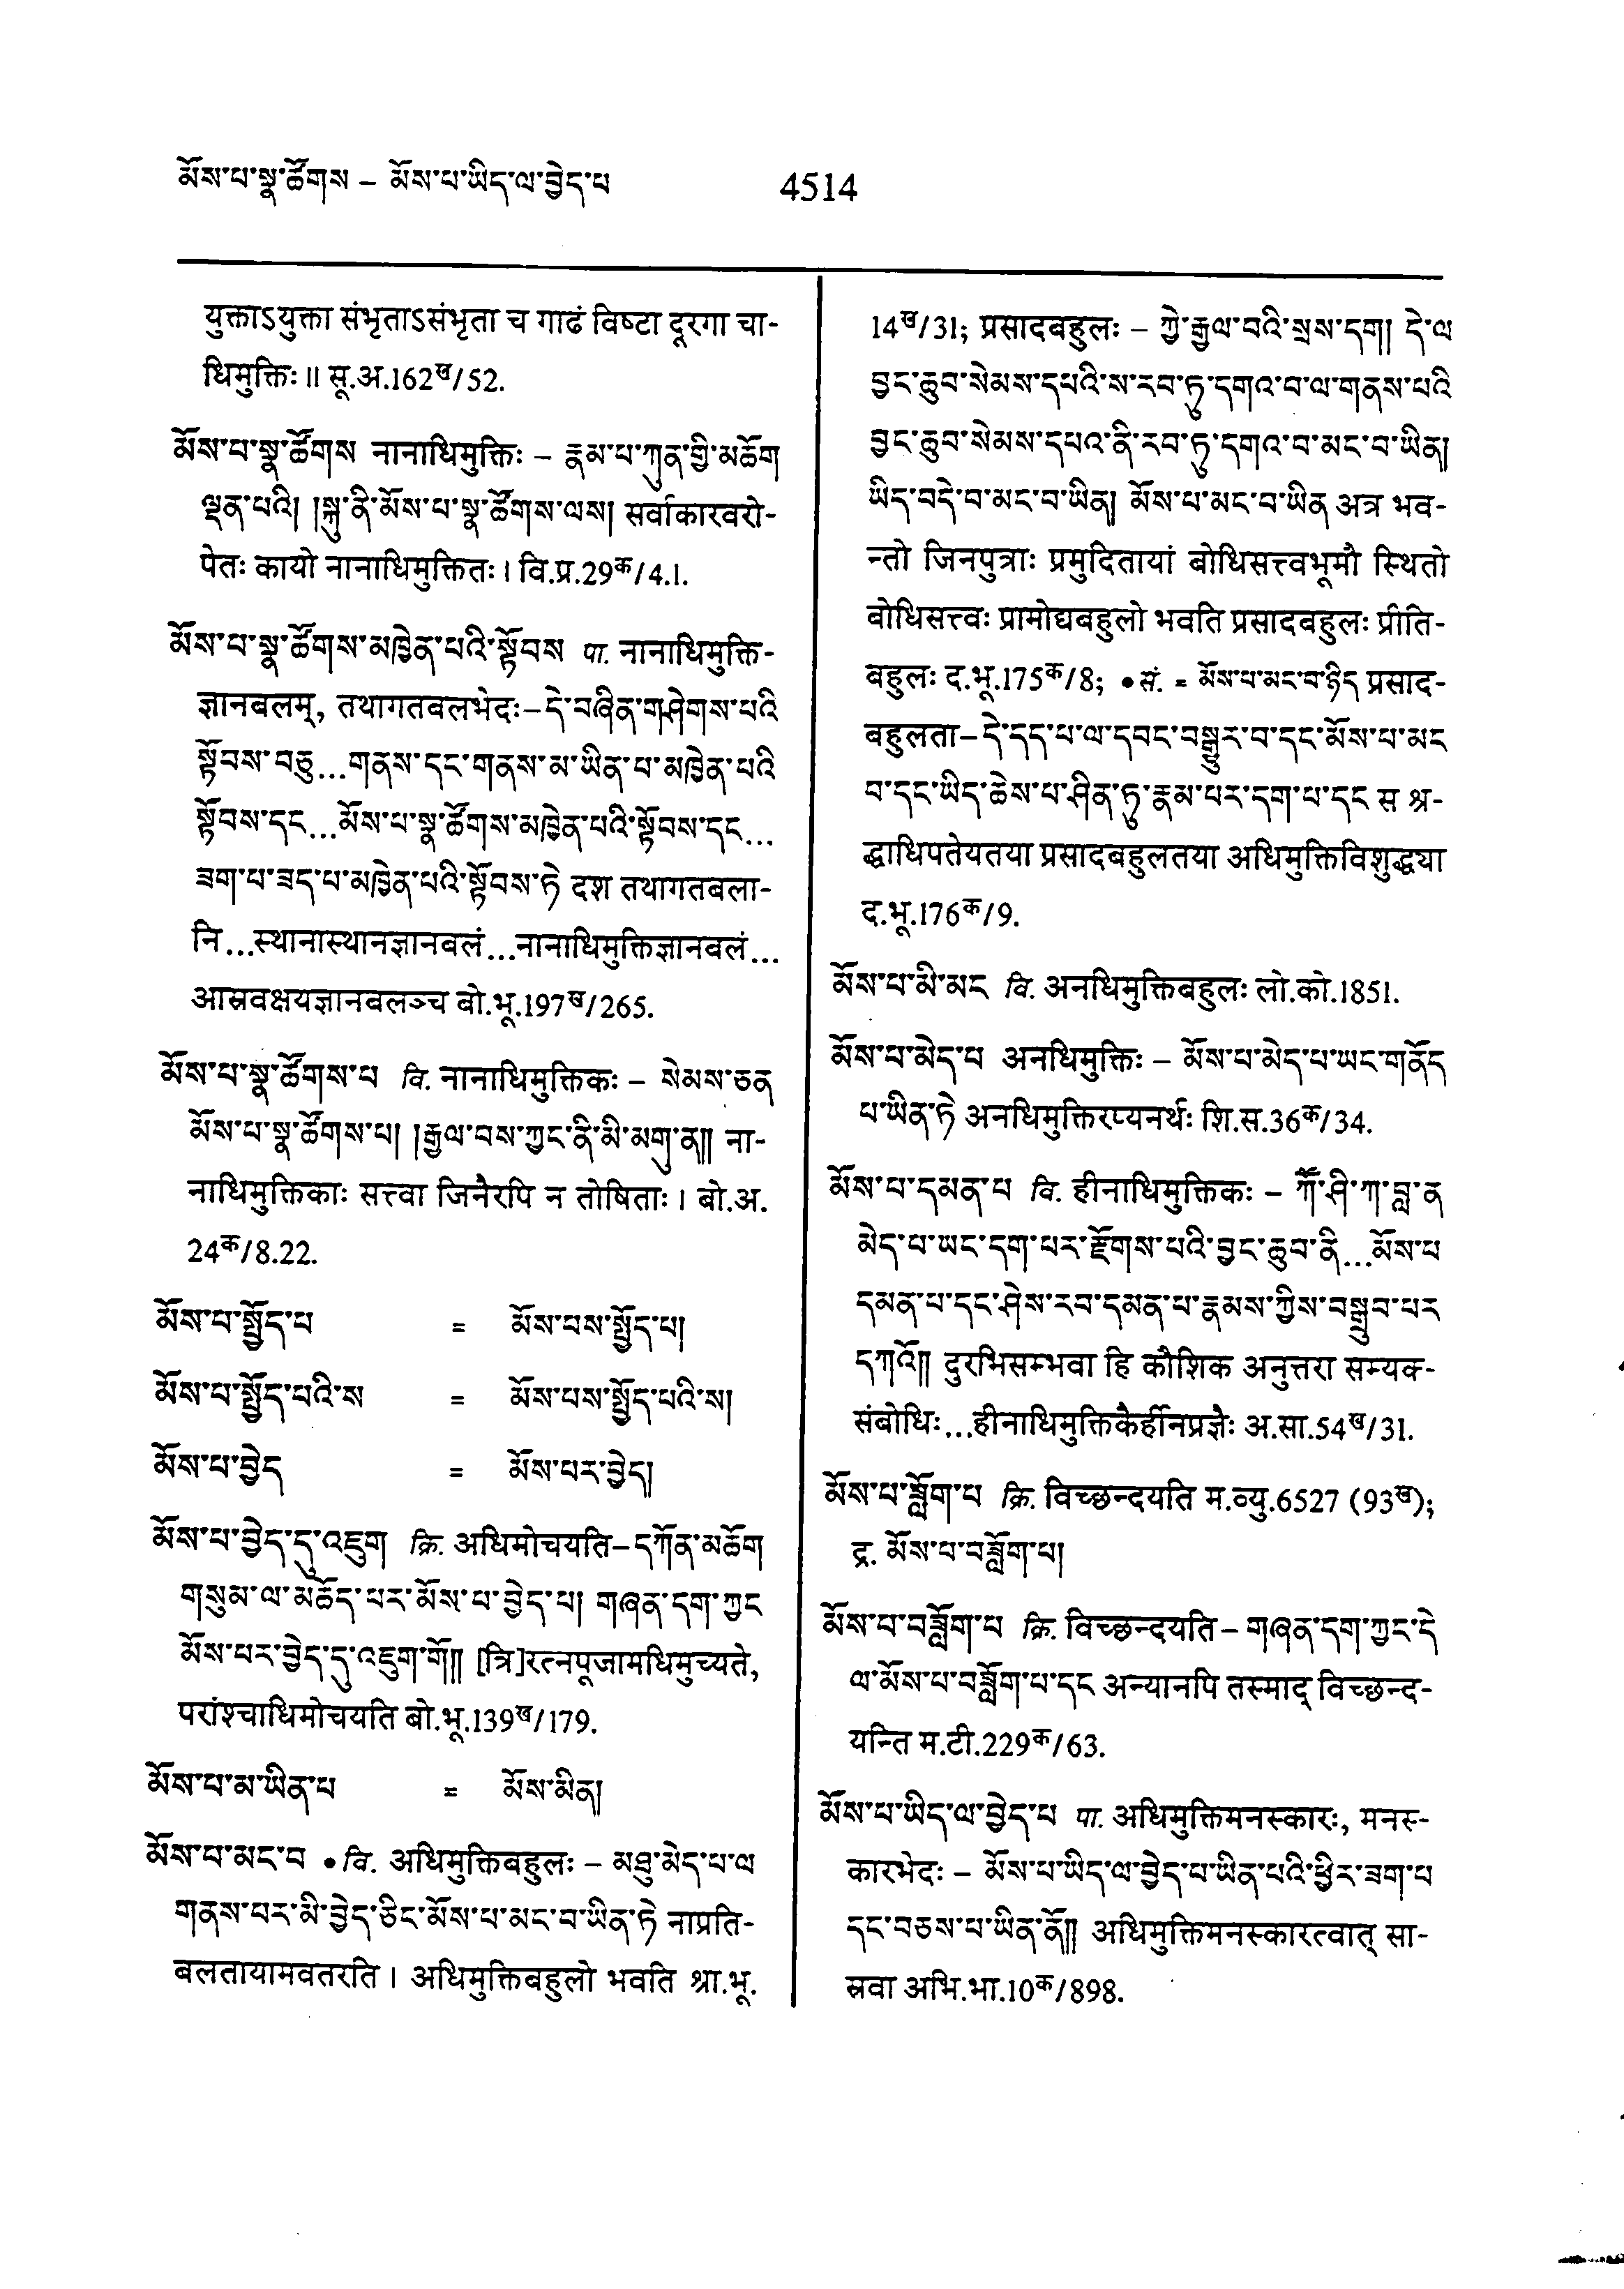 མོས་པ་སྣ་ཚོགས – མོས་པ་ཡིད་ལ་བྱེད་པ
4514
युक्ताऽयुक्ता संभृताऽसंभृता च गाढं विष्टा दूरगा चा-
धिमुक्तिः ॥ सू.अ.162ख/52.
མོས་པ་སྣ་ཚོགས नानाधिमुक्तिः – རྣམ་པ་ཀུན་གྱི་མཆོག
ལྡན་པའི། །སྐུ་ནི་མོས་པ་སྣ་ཚོགས་ལས། सर्वाकारवरो-
पेतः कायो नानाधिमुक्तितः । वि.प्र.29क/4.1.
མོས་པ་སྣ་ཚོགས་མཁྱེན་པའི་སྟོབས पा. नानाधिमुक्ति-
ज्ञानबलम्, तथागतबलभेदः–དེ་བཞིན་གཤེགས་པའི
སྟོབས་བཅུ...གནས་དང་གནས་མ་ཡིན་པ་མཁྱེན་པའི
སྟོབས་དང...མོས་པ་སྣ་ཚོགས་མཁྱེན་པའི་སྟོབས་དང...
ཟག་པ་ཟད་པ་མཁྱེན་པའི་སྟོབས་ཏེ दश तथागतबला-
नि...स्थानास्थानज्ञानबलं...नानाधिमुक्तिज्ञानबलं...
आस्रवक्षयज्ञानबलञ्च बो.भू.197ख/265.
མོས་པ་སྣ་ཚོགས་པ वि. नानाधिमुक्तिकः – སེམས་ཅན
མོས་པ་སྣ་ཚོགས་པ། །རྒྱལ་བས་ཀྱང་ནི་མི་མགུ་ན།། ना-
नाधिमुक्तिकाः सत्त्वा जिनैरपि न तोषिताः । बो.अ.
24क/8.22.
མོས་པ་སྤྱོད་པ = མོས་པས་སྤྱོད་པ།
མོས་པ་སྤྱོད་པའི་ས = མོས་པས་སྤྱོད་པའི་ས།
མོས་པ་བྱེད = མོས་པར་བྱེད།
མོས་པ་བྱེད་དུ་འཇུག क्रि. अधिमोचयति–དཀོན་མཆོག
གསུམ་ལ་མཆོད་པར་མོས་པ་བྱེད་པ། གཞན་དག་ཀྱང
མོས་པར་བྱེད་དུ་འཇུག་གོ།། [त्रि]रत्नपूजामधिमुच्यते,
परांश्चाधिमोचयति बो.भू.139ख/179.
མོས་པ་མ་ཡིན་པ = མོས་མིན།
མོས་པ་མང་བ • वि. अधिमुक्तिबहुलः – མཐུ་མེད་པ་ལ
གནས་པར་མི་བྱེད་ཅིང་མོས་པ་མང་བ་ཡིན་ཏེ नाप्रति-
बलतायामवतरति । अधिमुक्तिबहुलो भवति श्रा.भू.
14ख/31; प्रसादबहुलः – ཀྱེ་རྒྱལ་བའི་སྲས་དག། དེ་ལ
བྱང་ཆུབ་སེམས་དཔའི་ས་རབ་ཏུ་དགའ་བ་ལ་གནས་པའི
བྱང་ཆུབ་སེམས་དཔའ་ནི་རབ་ཏུ་དགའ་བ་མང་བ་ཡིན།
ཡིད་བདེ་བ་མང་བ་ཡིན། མོས་པ་མང་བ་ཡིན अत्र भव-
न्तो जिनपुत्राः प्रमुदितायां बोधिसत्त्वभूमौ स्थितो
बोधिसत्त्वः प्रामोद्यबहुलो भवति प्रसादबहुलः प्रीति-
बहुलः द.भू.175क/8; • सं. = མོས་པ་མང་བ་ཉིད प्रसाद-
बहुलता–དེ་དད་པ་ལ་དབང་བསྒྱུར་བ་དང་མོས་པ་མང
བ་དང་ཡིད་ཆེས་པ་ཤིན་ཏུ་རྣམ་པར་དག་པ་དང स श्र-
द्धाधिपतेयतया प्रसादबहुलतया अधिमुक्तिविशुद्ध्या
द.भू.176क/9.
མོས་པ་མི་མང वि. अनधिमुक्तिबहुलः लो.को.1851.
མོས་པ་མེད་པ अनधिमुक्तिः – མོས་པ་མེད་པ་ཡང་གནོད
པ་ཡིན་ཏེ अनधिमुक्तिरप्यनर्थः शि.स.36क/34.
མོས་པ་དམན་པ वि. हीनाधिमुक्तिकः – ཀཽ་ཤི་ཀ་བླ་ན
མེད་པ་ཡང་དག་པར་རྫོགས་པའི་བྱང་ཆུབ་ནི...མོས་པ
དམན་པ་དང་ཤེས་རབ་དམན་པ་རྣམས་ཀྱིས་བསྒྲུབ་པར
དཀའོ།། दुरभिसम्भवा हि कौशिक अनुत्तरा सम्यक्-
संबोधिः...हीनाधिमुक्तिकैर्हीनप्रज्ञैः अ.सा.54ख/31.
མོས་པ་ཟློག་པ क्रि. विच्छन्दयति म.व्यु.6527 (93ख);
द्र. མོས་པ་བཟློག་པ།
མོས་པ་བཟློག་པ क्रि. विच्छन्दयति– གཞན་དག་ཀྱང་དེ
ལ་མོས་པ་བཟློག་པ་དང अन्यानपि तस्माद् विच्छन्द-
यन्ति म.टी.229क/63.
མོས་པ་ཡིད་ལ་བྱེད་པ पा. अधिमुक्तिमनस्कारः, मनस्-
कारभेदः – མོས་པ་ཡིད་ལ་བྱེད་པ་ཡིན་པའི་ཕྱིར་ཟག་པ
དང་བཅས་པ་ཡིན་ནོ།། अधिमुक्तिमनस्कारत्वात् सा-
स्रवा अभि.भा.10क/898.